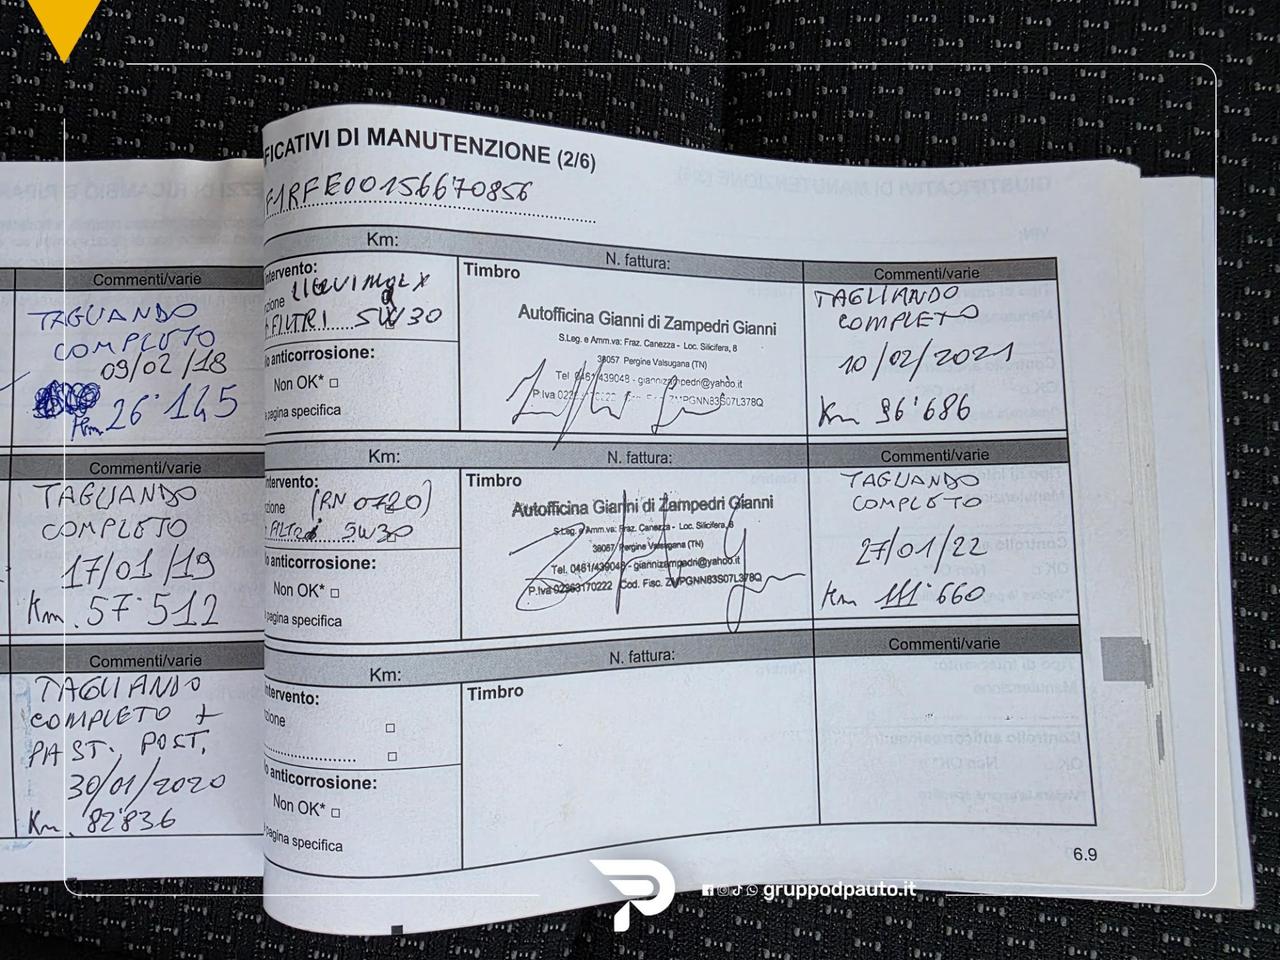 Commenti/varie
TAGLIANDO
COMPLETO
09/02/18
Km 26'145
Commenti/varie
TAGLIANDO
COMPLETO
17/01/19
Km. 57'512
Commenti/varie
TAGLIANDO
COMPLETO +
PAST. POST.
30/01/2020
Km. 82'836
FICATIVI DI MANUTENZIONE (2/6)
F1RFE00156670856
Km:
N. fattura:
Commenti/varie
ntervento:
zione
FILTRI 5W30
o anticorrosione:
Non OK* □
pagina specifica
Timbro
Autofficina Gianni di Zampedri Gianni
S.Leg. e Amm.va: Fraz. Canezza - Loc. Silicifera, 8
38057 Pergine Valsugana (TN)
Tel. 0461/439048 - giannizampedri@yahoo.it
P.Iva ZMPGNN83S07L378Q
TAGLIANDO
COMPLETO
10/02/2021
Km 96'686
Km:
N. fattura:
Commenti/varie
ntervento:
zione (RN0720)
FILTRI 5W30
o anticorrosione:
Non OK* □
pagina specifica
Timbro
Autofficina Gianni di Zampedri Gianni
S.Leg. e Amm.va: Fraz. Canezza - Loc. Silicifera, 8
38057 Pergine Valsugana (TN)
Tel. 0461/439048 - giannizampedri@yahoo.it
P.Iva 02363170222 Cod. Fisc. ZMPGNN83S07L378Q
TAGLIANDO
COMPLETO
27/01/22
Km 111'660
Km:
N. fattura:
Commenti/varie
ntervento:
zione □
□
o anticorrosione:
Non OK* □
pagina specifica
Timbro
6.9
gruppodpauto.it